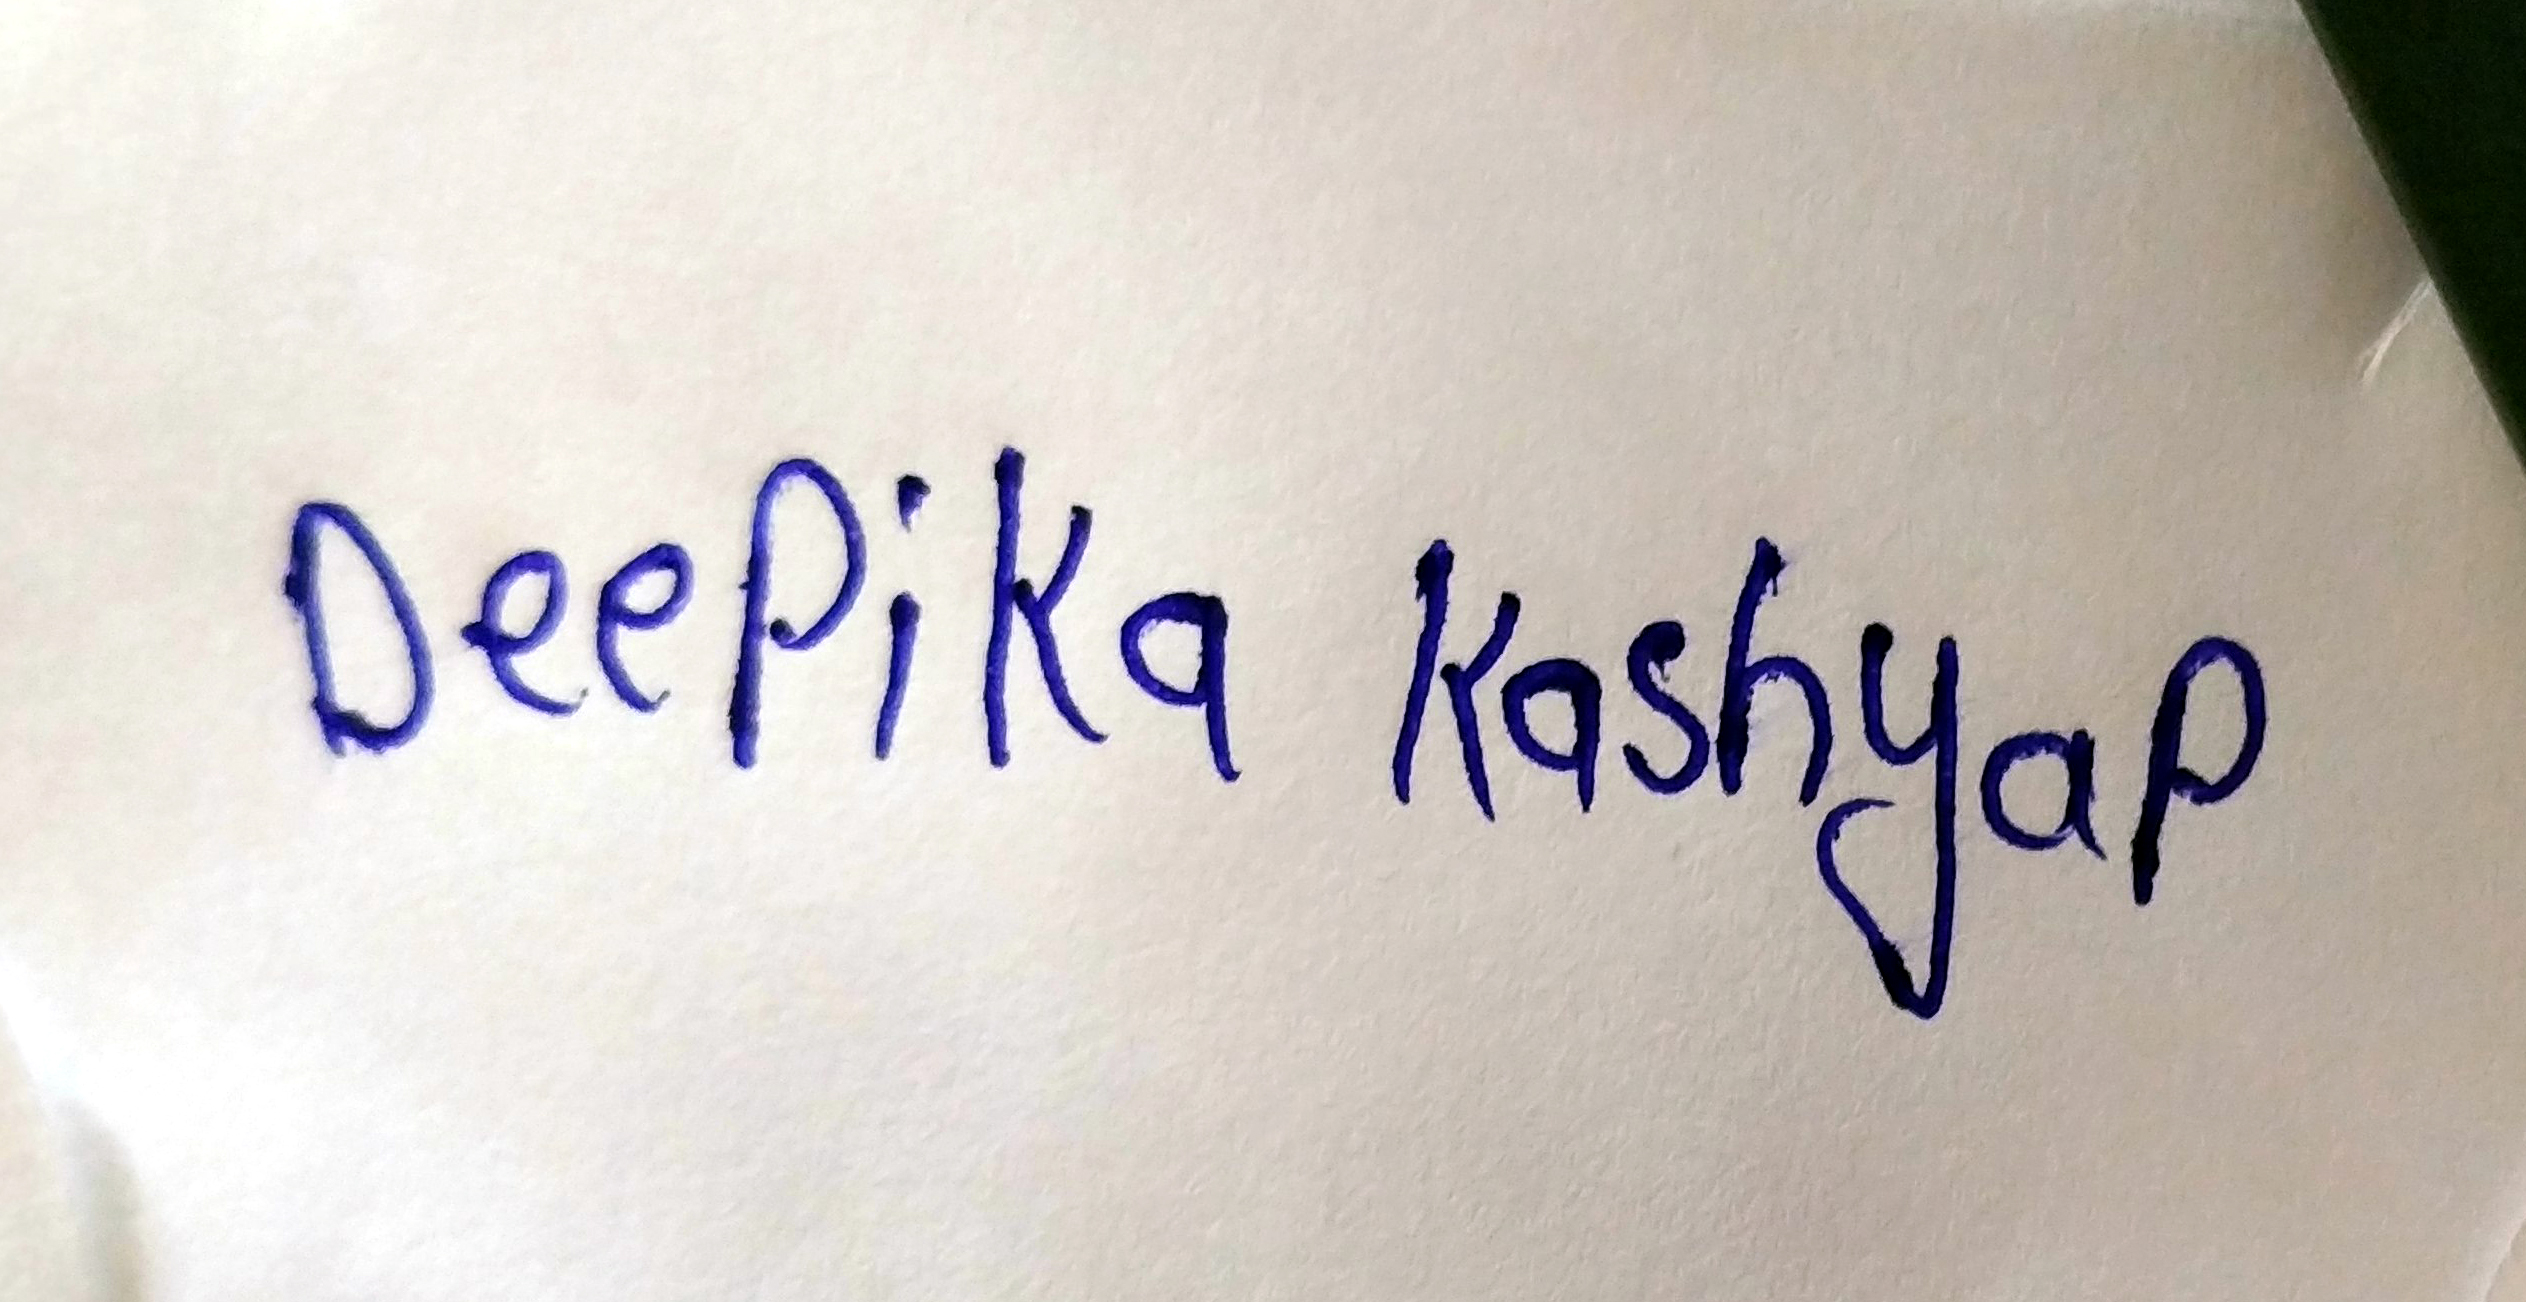 Deepika Kashyap